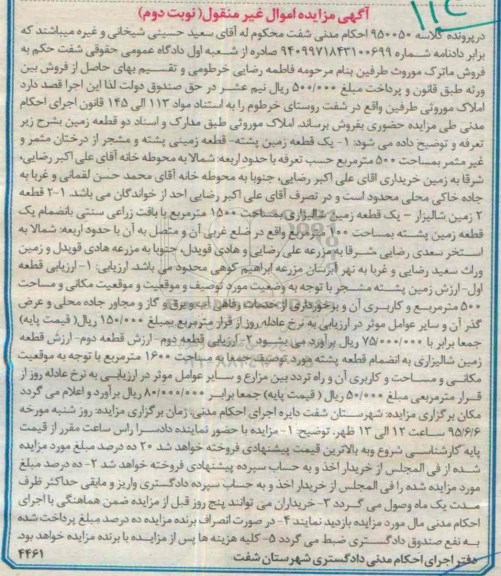 ۱۱۲
آگهی مزایده اموال غیر منقول( نوبت دوم)
در پرونده کلاسه ۹۵۰۰۵۰ احکام مدنی شفت محکوم له آقای سعید حسینی شیخانی و غیره میباشند که
برابر دادنامه شماره ۹۴۰۹۹۷۱۸۴۳۱۰۰۶۹۹ صادره از شعبه اول دادگاه عمومی حقوقی شفت حکم به
فروش ماترک موروث طرفین بنام مرحومه فاطمه رضایی خرطومی و تقسیم بهای حاصل از فروش بین
ورثه طبق قانون و پرداخت مبلغ ۵۰۰/۰۰۰ ریال نیم عشر در حق صندوق دولت لذا این اجرا قصد دارد
املاک موروثی طرفین واقع در شفت روستای خرطوم را به استناد مواد ۱۱۳ الی ۱۴۵ قانون اجرای احکام
مدنی طی مزایده حضوری بفروش برساند. املاک موروثی طبق مدارک و اسناد دو قطعه زمین بشرح زیر
تعرفه و توضیح داده می شود: ۱- یک قطعه زمین پشته- قطعه زمینی پشته و مشجر از درختان مثمر و
غیر مثمر بمساحت ۵۰۰ مترمربع حسب تعرفه با حدود اربعه: شمالا به محوطه خانه آقای علی اکبر رضایی،
شرقا به زمین خریداری اقای علی اکبر رضایی، جنوبا به محوطه خانه آقای محمد حسن لقمانی و غربا به
جاده خاکی محلی محدود است و در تصرف آقای علی اکبر رضایی احد از خواندگان می باشد. ۱-۲ قطعه
۲ زمین شالیزار – یک قطعه زمین شالیزاری بمساحت ۱۵۰۰ مترمربع با بافت زراعی سنتی بانضمام یک
قطعه زمین پشته بمساحت ۱۰۰ مترمربع واقع در ضلع غربی آن و متصل به آن با حدود اربعه: شمالا به
استخر سعدی رضایی شرقا به مزرعه علی رضایی و هادی قویدل، جنوبا به مزرعه هادی قویدل و زمین
وراث سعید رضایی و غربا به نهر آبرسان مزرعه ابراهیم کوهی محدود می باشد. ارزیابی: ۱- ارزیابی قطعه
اول- ارزش زمین پشته مشجر با توجه به وضعیت مورد توصیف و موقعیت و موقعیت مکانی و مساحت
۵۰۰ مترمربع و کاربری آن و برخورداری از خدمات رفاهی آب و برق و گاز و مجاور جاده محلی و عرض
گذر آن و سایر عوامل موثر در ارزیابی به نرخ عادله روز از قرار مترمربع بمبلغ ۱۵۰/۰۰۰ ریال( قیمت پایه)
جمعا برابر با ۷۵/۰۰۰/۰۰۰ ریال برآورد می بشود ۲- ارزیابی قطعه دوم- ارزش قطعه دوم- ارزش قطعه
زمین شالیزاری به انضمام قطعه پشته مورد توصیف جمعا به مساحت ۱۶۰۰ مترمربع با توجه به موقعیت
مکانی و مساحت و کاربری آن و راه تردد بین مزارع و سایر عوامل موثر در ارزیابی به نرخ عادله روز از
قرار مترمربعی مبلغ ۵۰/۰۰۰ ریال ( قیمت پایه) جمعا برابر ۸۰/۰۰۰/۰۰۰ ریال برآورد و اعلام می گردد
مکان برگزاری مزایده: شهرستان شفت دایره اجرای احکام مدنی، زمان برگزاری مزایده: روز شنبه مورخه
۹۵/۶/۶ ساعت ۱۲ الی ۱۳ ظهر. توضیح: ۱- مزایده با حضور نماینده دادسرا راس ساعت مقرر از قیمت
پایه کارشناسی شروع وبه بالاترین قیمت پیشنهادی فروخته خواهد شد ۲۰ ده درصد مبلغ مورد مزایده
شده از فی المجلس از خریدار اخذ و به حساب سپرده پیشنهادی فروخته خواهد شد ۲- ده درصد مبلغ
مورد مزایده شده را فی المجلس از خریدار اخذ و به حساب سپرده دادگستری واریز و مابقی حداکثر ظرف
مدت یک ماه وصول می گردد ۳- خریداران می توانند پنج روز قبل از مزایده ضمن هماهنگی با اجرای
احکام مدنی مال مورد مزایده بازدید نمایند ۴- در صورت انصراف برنده مزایده ده درصد مبلغ پرداخت شده
به نفع صندوق دادگستری ضبط می گردد ۵- کلیه هزینه ها پس از مزایده با برنده مزایده خواهد بود.
دفتر اجرای احکام مدنی دادگستری شهرستان شفت ۴۴۶۱